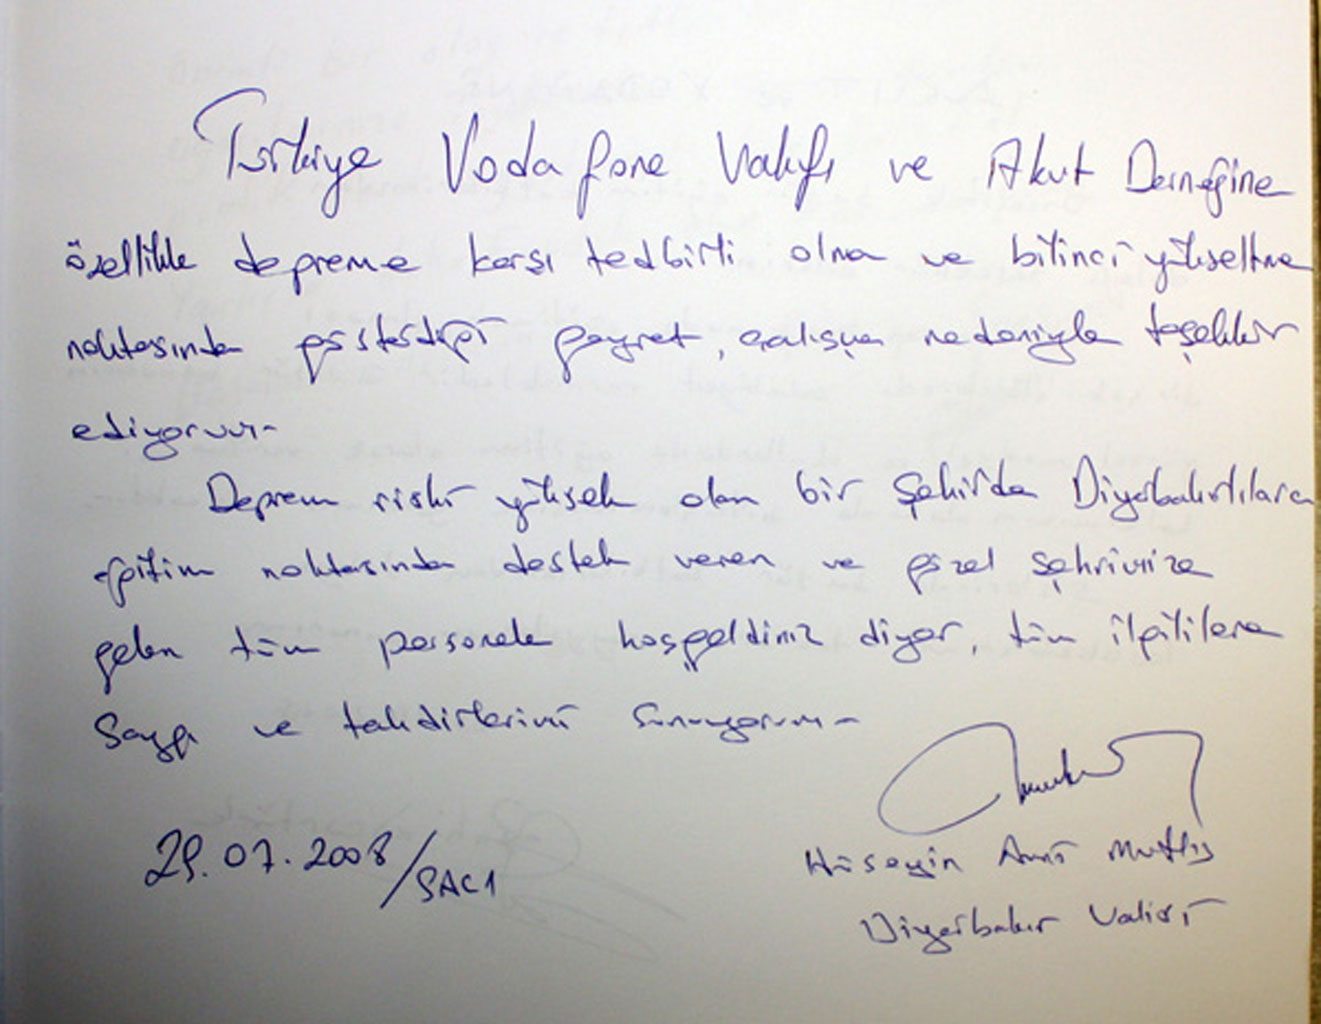 Türkiye Vodafone Vakfı ve Akut Derneğine
özellikle depreme karşı tedbirli olma ve bilinci yükseltme
noktasında gösterdiği gayret, çalışma nedeniyle teşekkür
ediyorum-
Deprem riski yüksek olan bir şehirde Diyarbakırlılara
eğitim noktasında destek veren ve güzel şehrimize
gelen tüm personele hoşgeldiniz diyor, tüm ilgililere
saygı ve takdirlerimi sunuyorum-
29.07.2008/SALI
Hüseyin Avni Mutlu
Diyarbakır Valisi